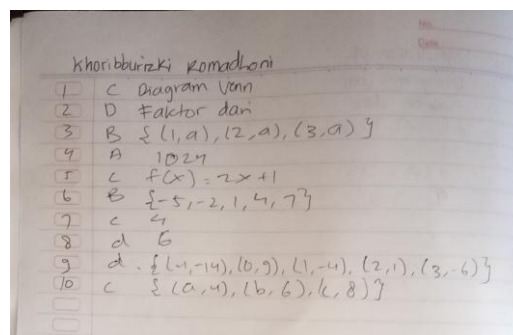 No.
Date
Khoribburizki Romadhoni
1 C Diagram Venn
2 D Faktor dari
3 B {(1,a), (2,a), (3,a)}
4 A 1024
5 C f(x) = 2x+1
6 B {-5,-2, 1, 4, 7}
7 C 4
8 d 6
9 d. {(-1,-14), (0,9), (1,-4), (2,1), (3,-6)}
10 C {(a,4), (b,6), (c,8)}